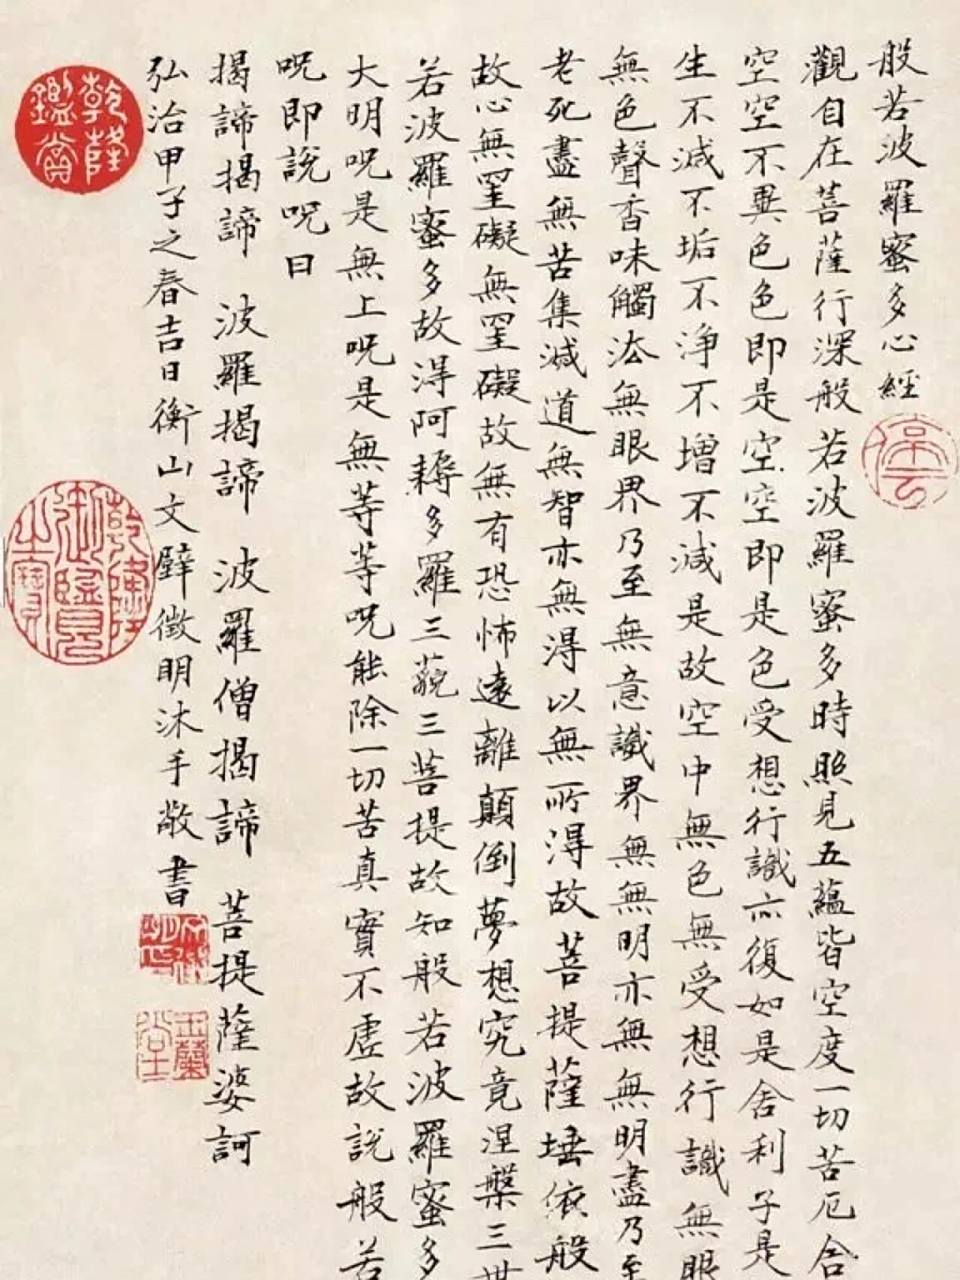 般若波羅蜜多心經
觀自在菩薩行深般若波羅蜜多時照見五蘊皆空度一切苦厄舍
空空不異色色即是空空即是色受想行識亦復如是舍利子是
生不滅不垢不淨不增不減是故空中無色無受想行識無眼
無色聲香味觸法無眼界乃至無意識界無無明亦無無明盡乃至
老死盡無苦集滅道無智亦無得以無所得故菩提薩埵依般
故心無罣礙無罣礙故無有恐怖遠離顛倒夢想究竟涅槃三世
若波羅蜜多故得阿耨多羅三藐三菩提故知般若波羅蜜多
大明呪是無上呪是無等等呪能除一切苦真實不虛故說般若
呪即說呪曰
揭諦揭諦 波羅揭諦 波羅僧揭諦 菩提薩婆訶
弘治甲子之春吉日衡山文壁徵明沐手敬書
乾隆鑑賞
乾隆御覽之寶
文徵明印
玉蘭堂